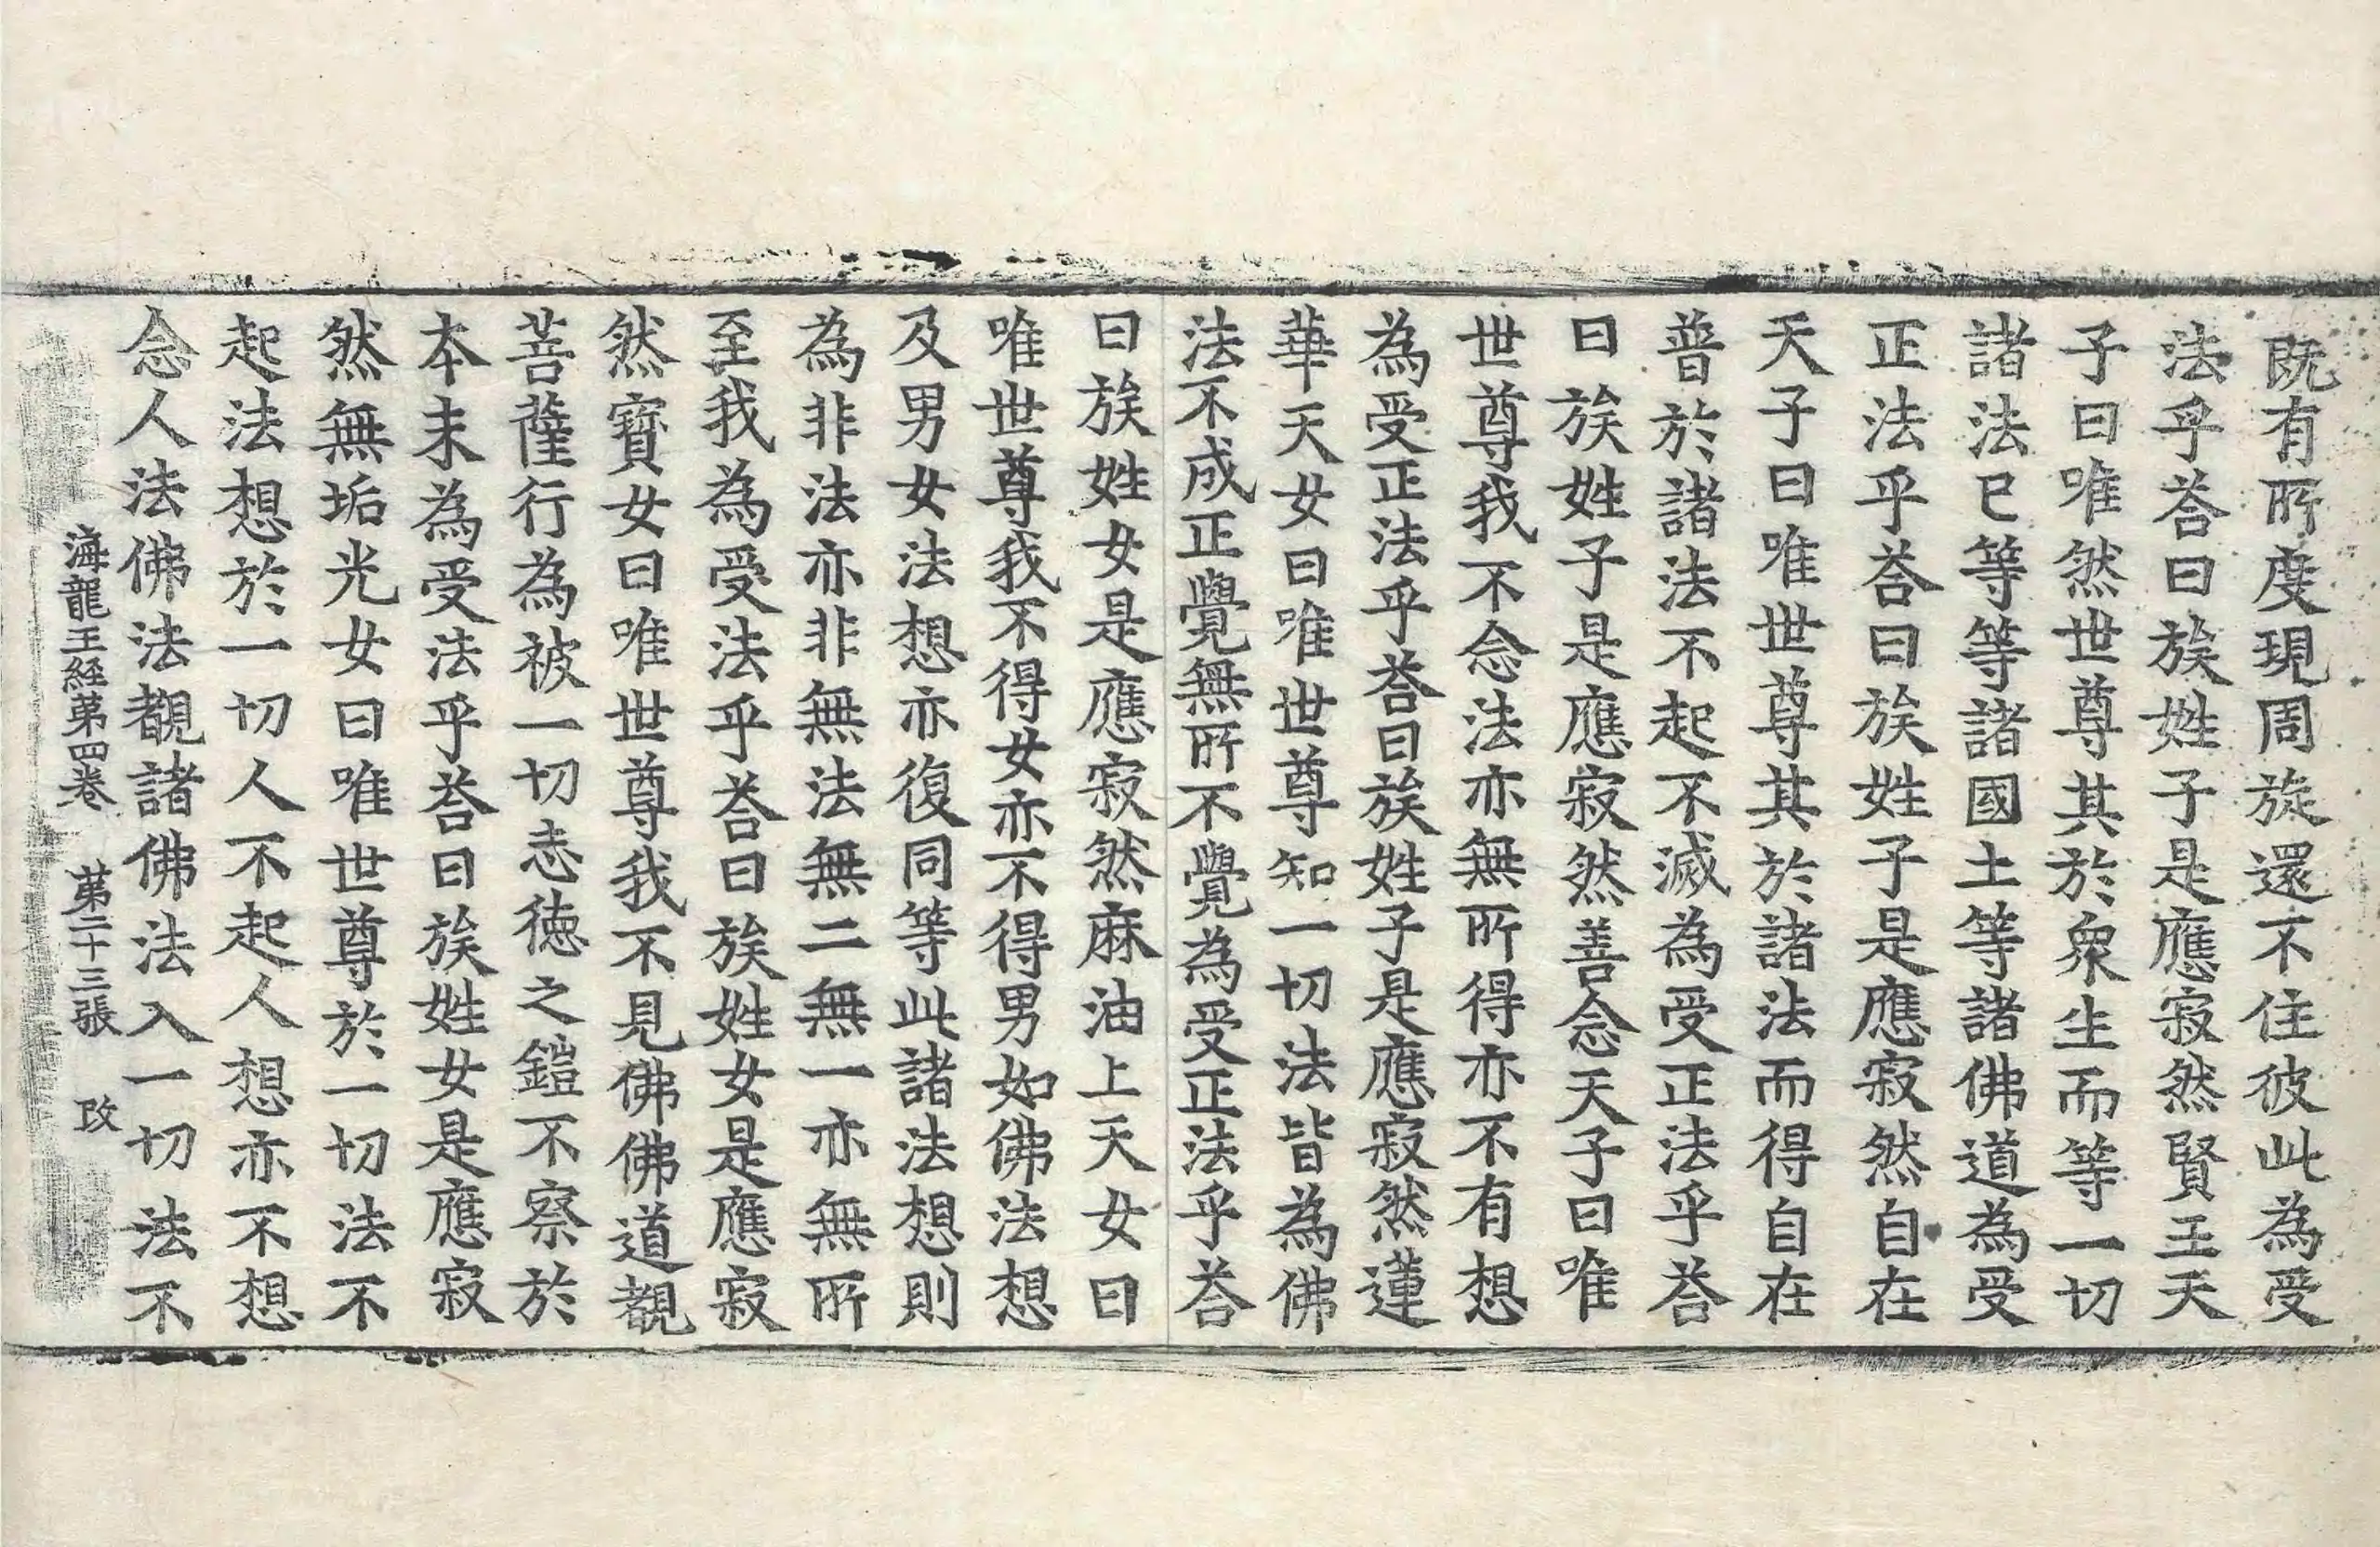 既有所度現周旋還不住彼此為受
法乎荅曰族姓子是應寂然賢王天
子曰唯然世尊其於衆生而等一切
諸法已等等諸國土等諸佛道為受
正法乎荅曰族姓子是應寂然自在
天子曰唯世尊其於諸法而得自在
普於諸法不起不滅為受正法乎荅
曰族姓子是應寂然善念天子曰唯
世尊我不念法亦無所得亦不有想
為受正法乎荅曰族姓子是應寂然蓮
華天女曰唯世尊知一切法皆為佛
法不成正覺無所不覺為受正法乎荅
曰族姓女是應寂然麻油上天女曰
唯世尊我不得女亦不得男如佛法想
及男女法想亦復同等此諸法想則
為非法亦非無法無二無一亦無所
至我為受法乎荅曰族姓女是應寂
然寶女曰唯世尊我不見佛佛道觀
菩薩行為被一切志德之鎧不察於
本末為受法乎荅曰族姓女是應寂
然無垢光女曰唯世尊於一切法不
起法想於一切人不起人想亦不想
念人法佛法觀諸佛法入一切法不
海龍王經第四卷 第二十三張 改